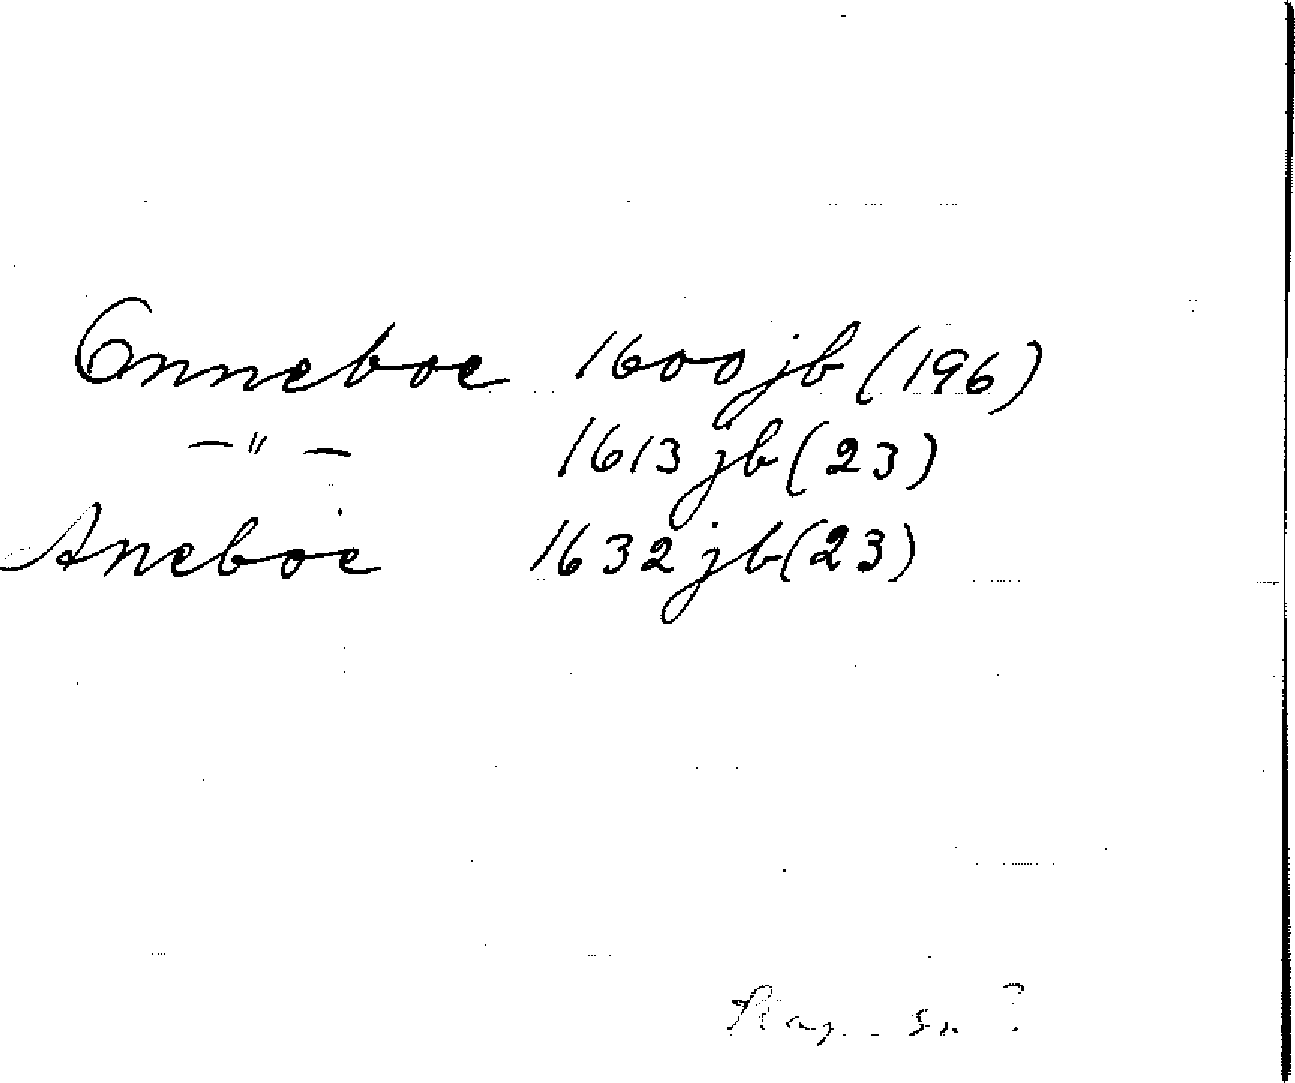 Enneboe 1600 jb (196)
— " — 1613 jb (23)
Aneboe 1632 jb (23)